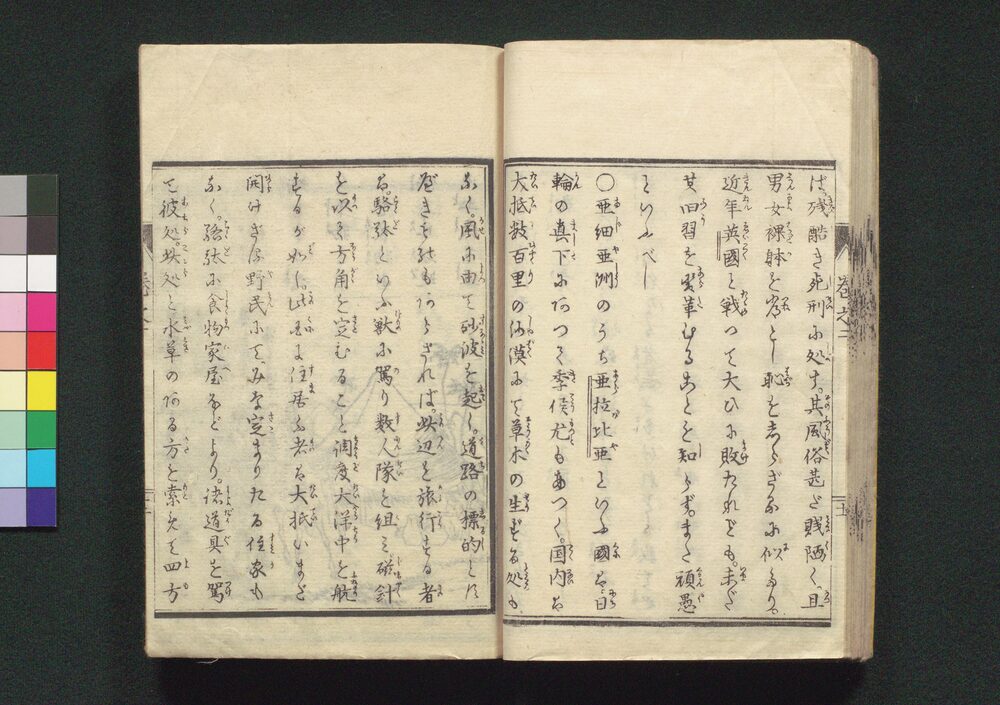 ば。残酷き死刑に処す。其風俗甚だ賤陋く。且
男女裸体を為とし恥を志らざるに似たり。
近年英國と戦つて大ひに敗たれども。未だ
其旧習を変革むることを知らず。また頑愚
といふべし
〇亜細亜洲のうち亜拉比亜といふ國は。日
輪の真下にありて季候尤もあつく。国内は
大抵数百里の沙漠にて草木の生ずる処も
なく。風に由て砂波を起し。道路の標的とす
べきものもあらざれば。此辺を旅行する者
は。駱駄といふ獣に駕り数人隊を組み磁針
を以て方角を定むること調度大洋中を航
するが如し。此国に住居ふ者は大抵いまだ
開けざる野民にてみな定まりたる住家も
なく。駱駄に食物家屋などより。諸道具を駕
て彼処。此処と水草のある方を索めて四方
巻之二